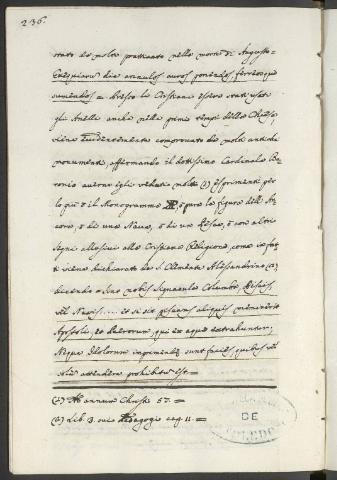 236.
stato de molto pratticato nella morte di Augusto =
Exequiarū die annulos aureos ponendos, ferreosque
sumendos = Presso li Cristiani essere stati usati
gli Anelli anche nelli primi tempi della Chiesa,
viene evidentemente comprovato da molti antichi
monumenti, affermando il dottissimo Cardinale Ba-
ronio averne egli veduti molti (1) esprimenti per
lo più ò il Monogramma, ò pure la figura dell' An-
cora, ò di una Nave, ò di un Pesce, ò con altri
segni allusivi alla Cristiana Religione, come in fat-
ti viene dichiarato da S. Clemente Alessandrino (2)
dicendo = Sint nobis signaculo Columba, Piscis,
vel Navis .... et si sit piscans aliquis meminerit
Apostoli, et Puerorum, qui ex aqua extrahuntur,
Neque Idolorum imprimendę sunt facies, quibus vel
solū attendere prohibitū est =
(1) Ad annum Christi 57. =
(2) Lib. 3. sui Pedagogi cap. 11. =
DE
TOLEDO